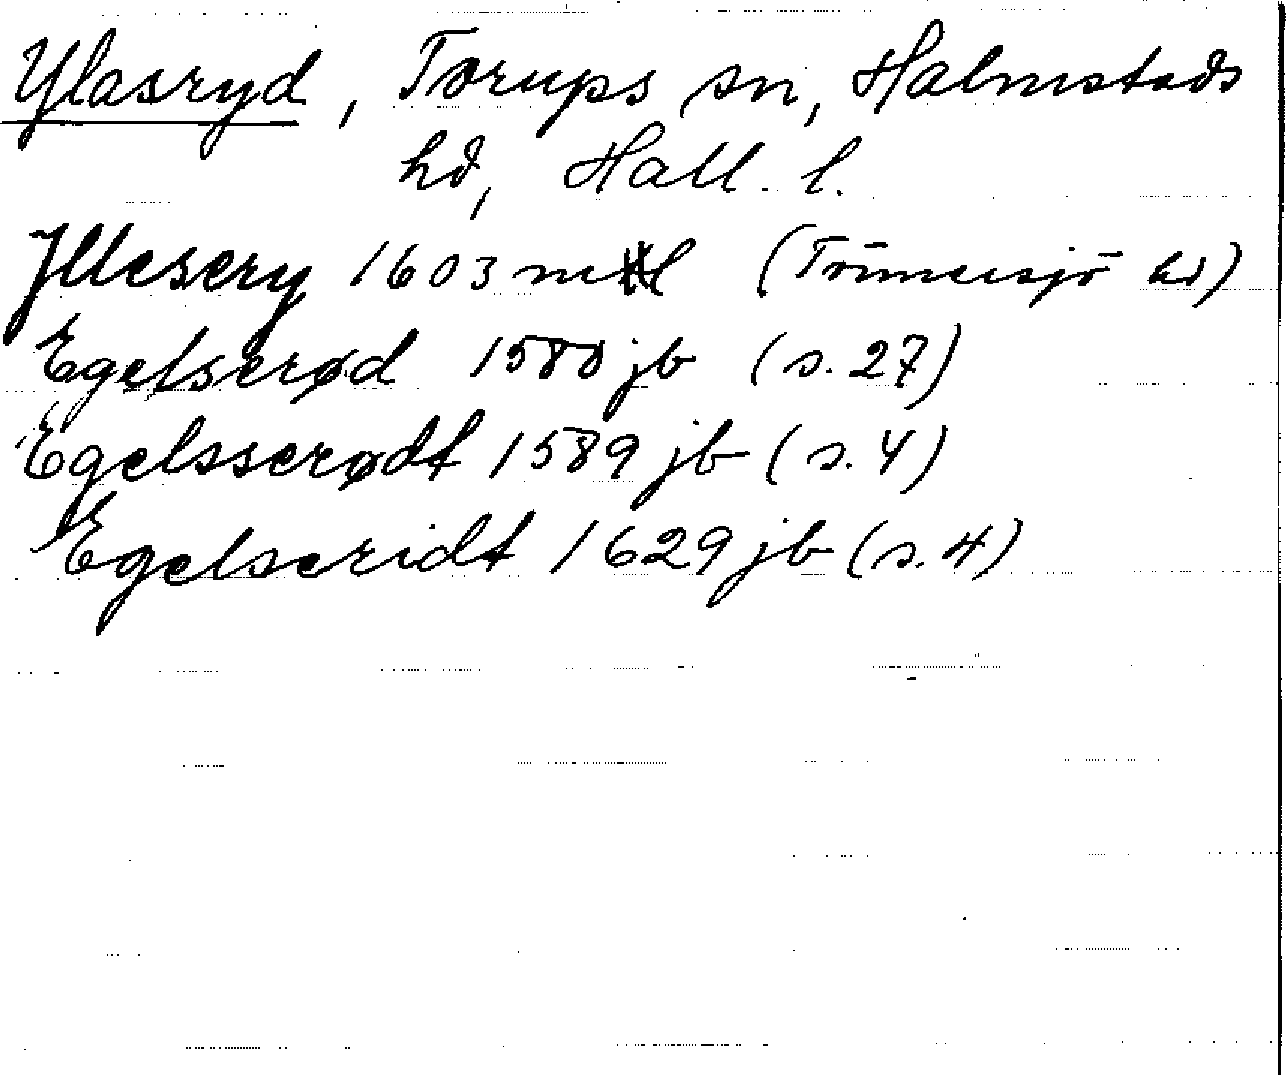 Ylasryd, Torups sn, Halmstads
hd, Hall. l.
Illesery 1603 ml (Tönnersjö hd)
Egelserød 1580 jb (s. 27)
Egelsserødt 1589 jb (s. 4)
Egelseridt 1629 jb (s. 4)